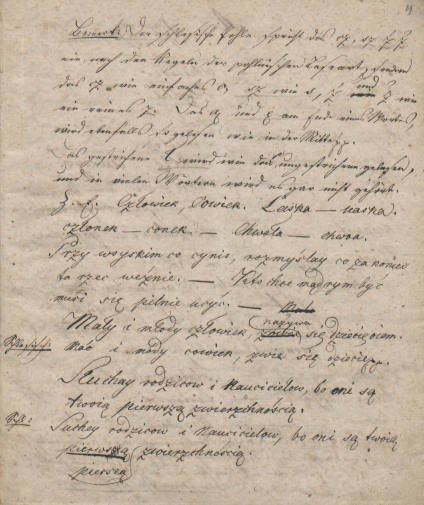 Bemerk: Der schlesische Pohle spricht das cz, sz, ż, ź
ein, nach den Regeln der pohlnischen Leseart, sondern
das cz wie einfaches c, sz wie s, ż und ź wie
ein reines z. Das ą und ę am Ende eines Wortes,
wird ebenfalls so gelesen wie in der Mitte pp.
Das gestrichene ł wird wie das ungestrichene gelesen,
und in vielen Wörtern wird es gar nicht gehört.
Z. E. Człowiek, Cowiek. Łaska — uaska.
członek — conek. — Chwała — chwoa.
Przy wszyskim co cynis, rozmyslay co za koniec
ta rzec weźnie. — Feto chce mądrym być
muśi się pilnie ucyc. —
Mały i młody człowiek, nazywa się dziecięciem.
Schlesisch: Mać i mody cowiek, zwie się dziecię pp.
Słuchay rodziców i Nauczicielow, bo oni są
twoią pierwszą zwierzchnością.
Schl: Suchey rodziców i Nauczicielow, bo oni są twoią
pierwszą zwierzchnością.
pierszą